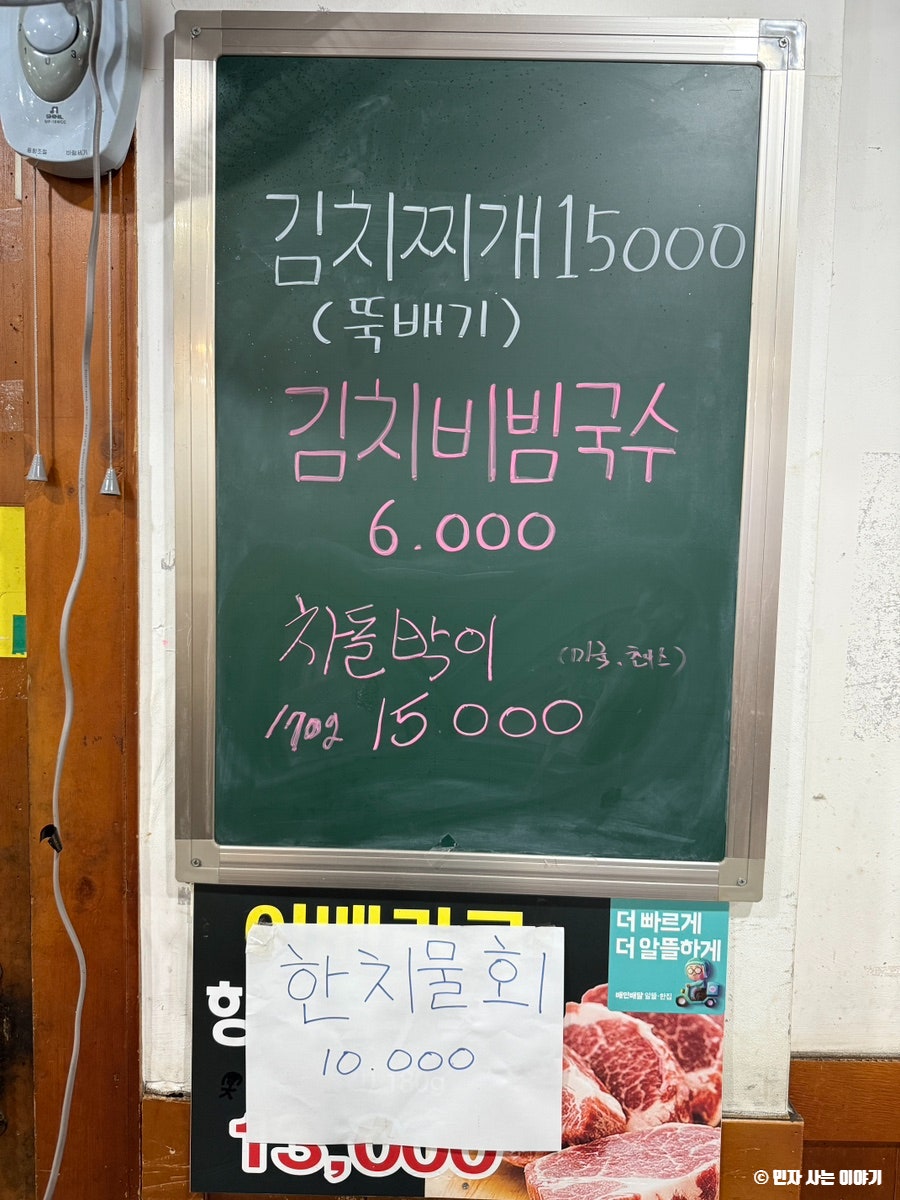 풍향조절 바람세기
김치찌개 15000
(뚝배기)
김치비빔국수
6.000
차돌박이
170g 15.000
더 빠르게
더 알뜰하게
배민배달 알뜰·한집
한치물회
10.000
13,000
© 민자 사는 이야기